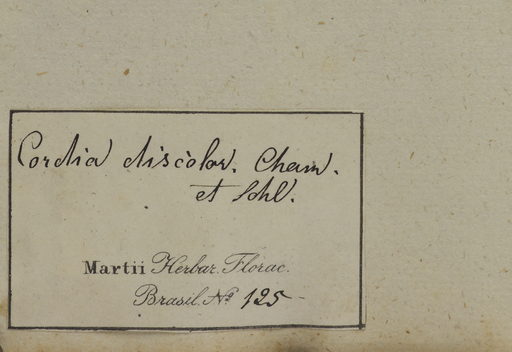 Cordia discolor. Cham.
et Schl.
Martii Herbar. Florac.
Brasil. No 125